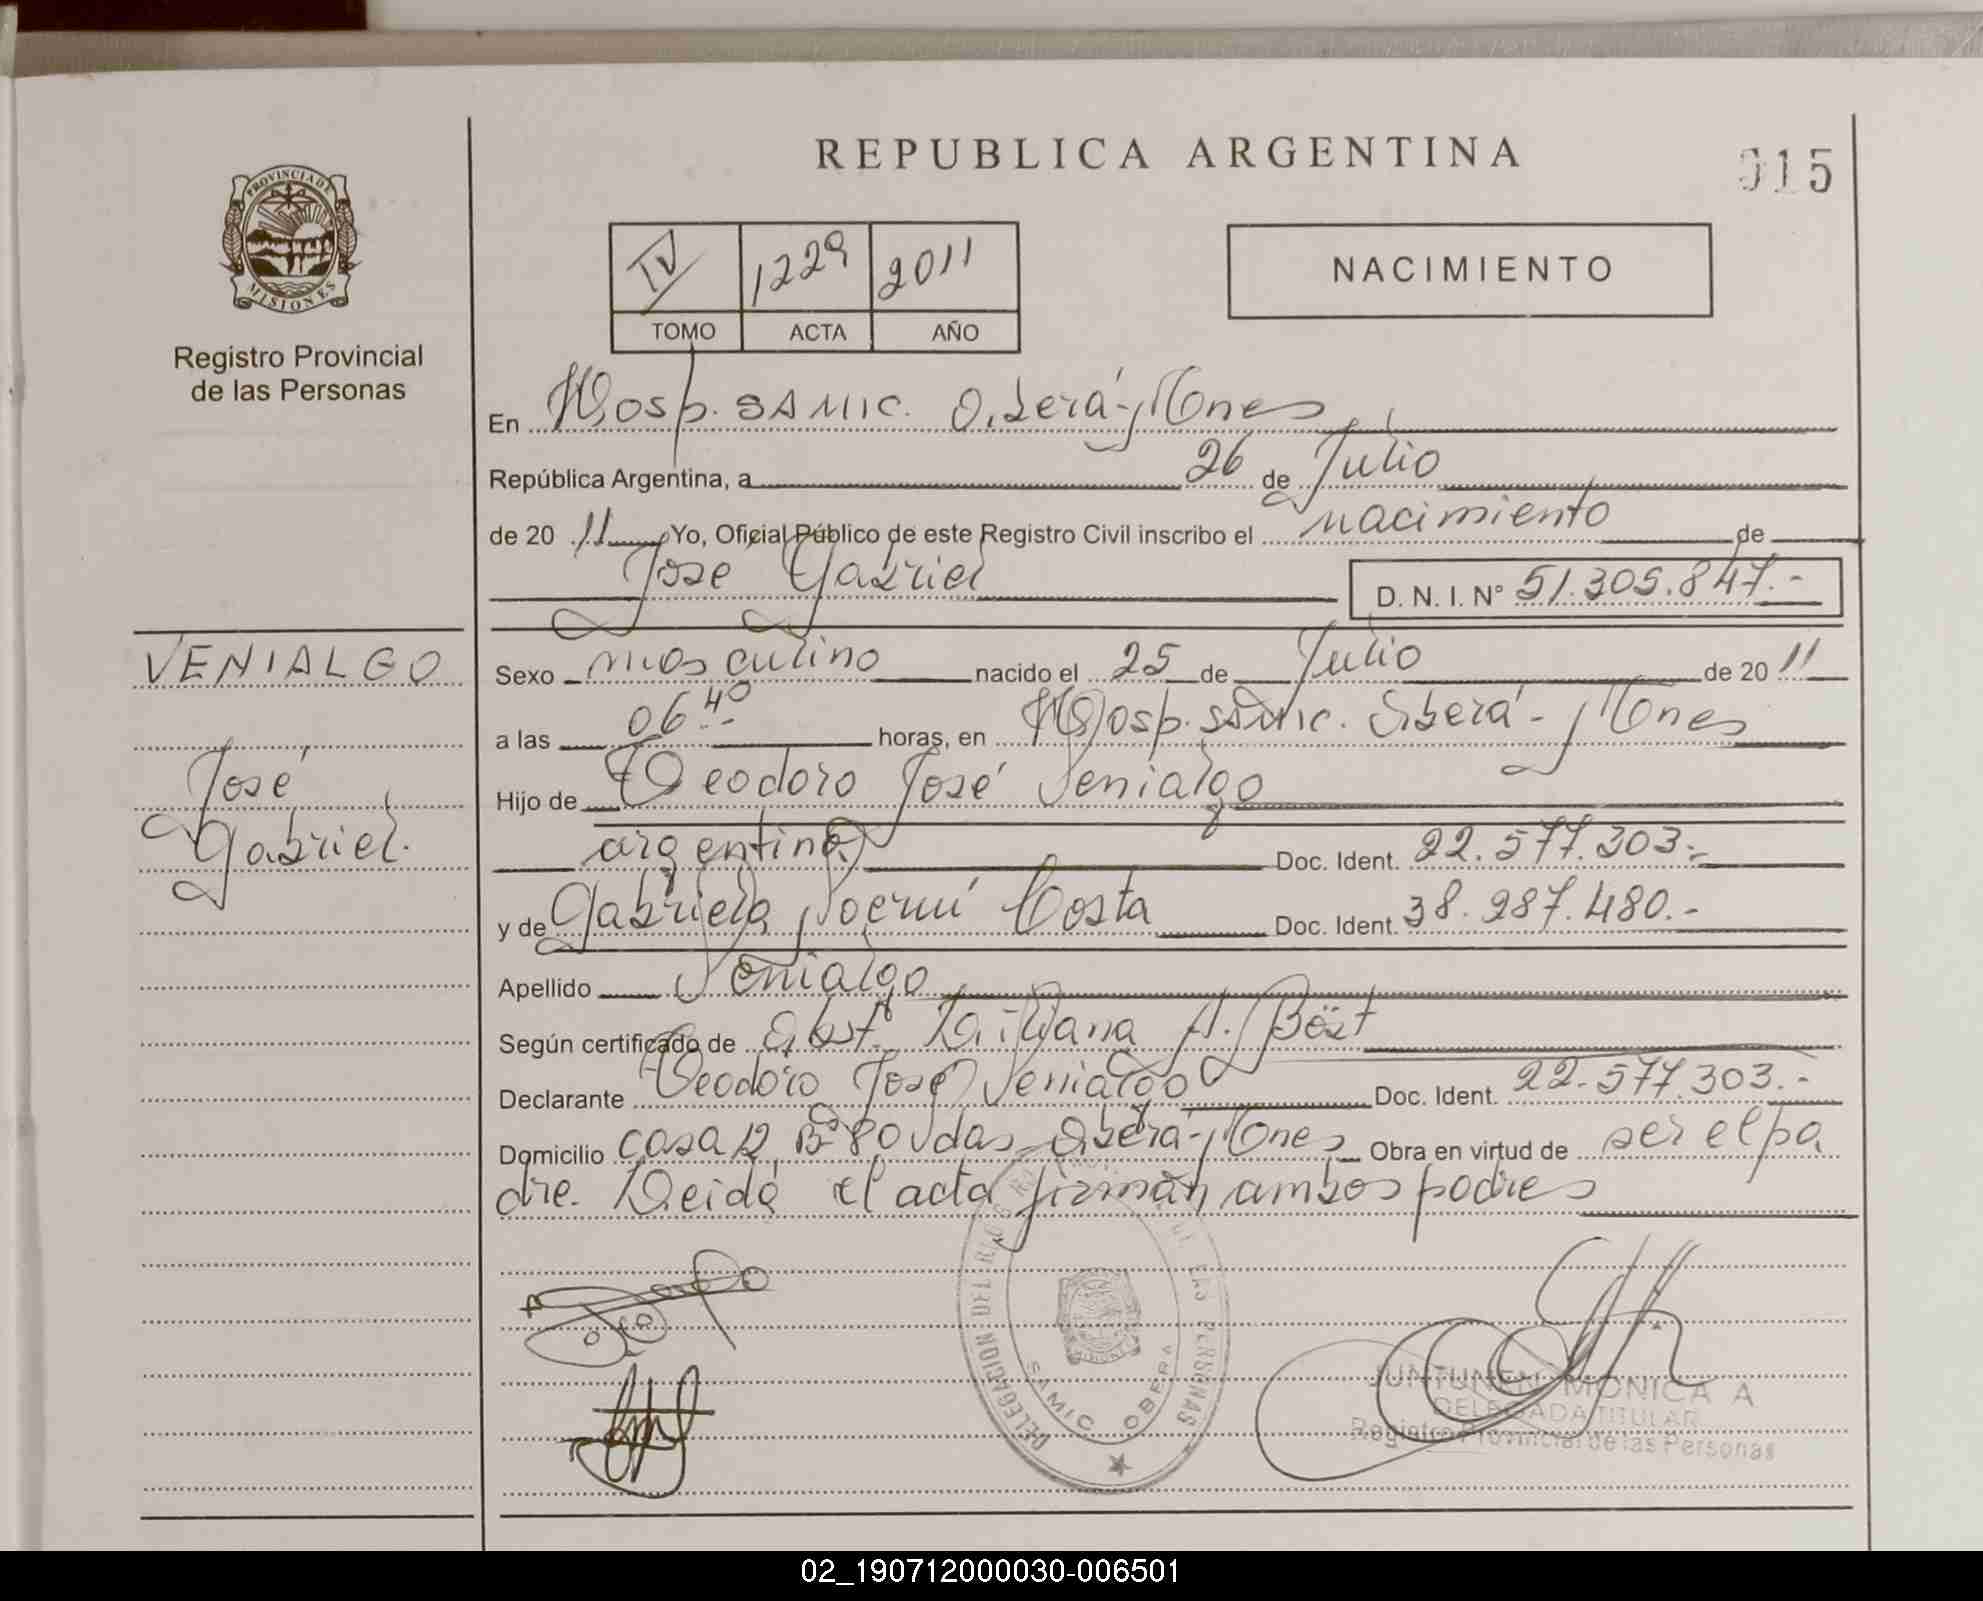 REPUBLICA ARGENTINA
015
PROVINCIA DE
MISIONES
Registro Provincial
de las Personas
IV 1229 2011
TOMO ACTA AÑO
NACIMIENTO
En Hosp. SAMIC. Oberá-Mnes
República Argentina, a 26 de Julio
de 20 11 Yo, Oficial Público de este Registro Civil inscribo el nacimiento de
José Gabriel
D. N. I. N° 51.305.847.-
VENIALGO
José
Gabriel.
Sexo masculino nacido el 25 de Julio de 20 11
a las 06.40 horas, en Hosp. SAMIC. Oberá-Mnes
Hijo de Teodoro José Venialgo
argentino Doc. Ident. 22.577.303.-
y de Gabriela Noemí Costa Doc. Ident. 38.987.480.-
Apellido Venialgo
Según certificado de Obst. A. Böst
Declarante Teodoro José Venialgo Doc. Ident. 22.577.303.-
Domicilio casa 12 Bº 80 Vdas Oberá-Mnes Obra en virtud de ser el pa
dre. Leida el acta firman ambos padres
DELEGACION DEL REGISTRO DE LAS PERSONAS
SAMIC OBERA
JUNTUNEN MONICA A
DELEGADA TITULAR
Registro Provincial de las Personas
02_190712000030-006501